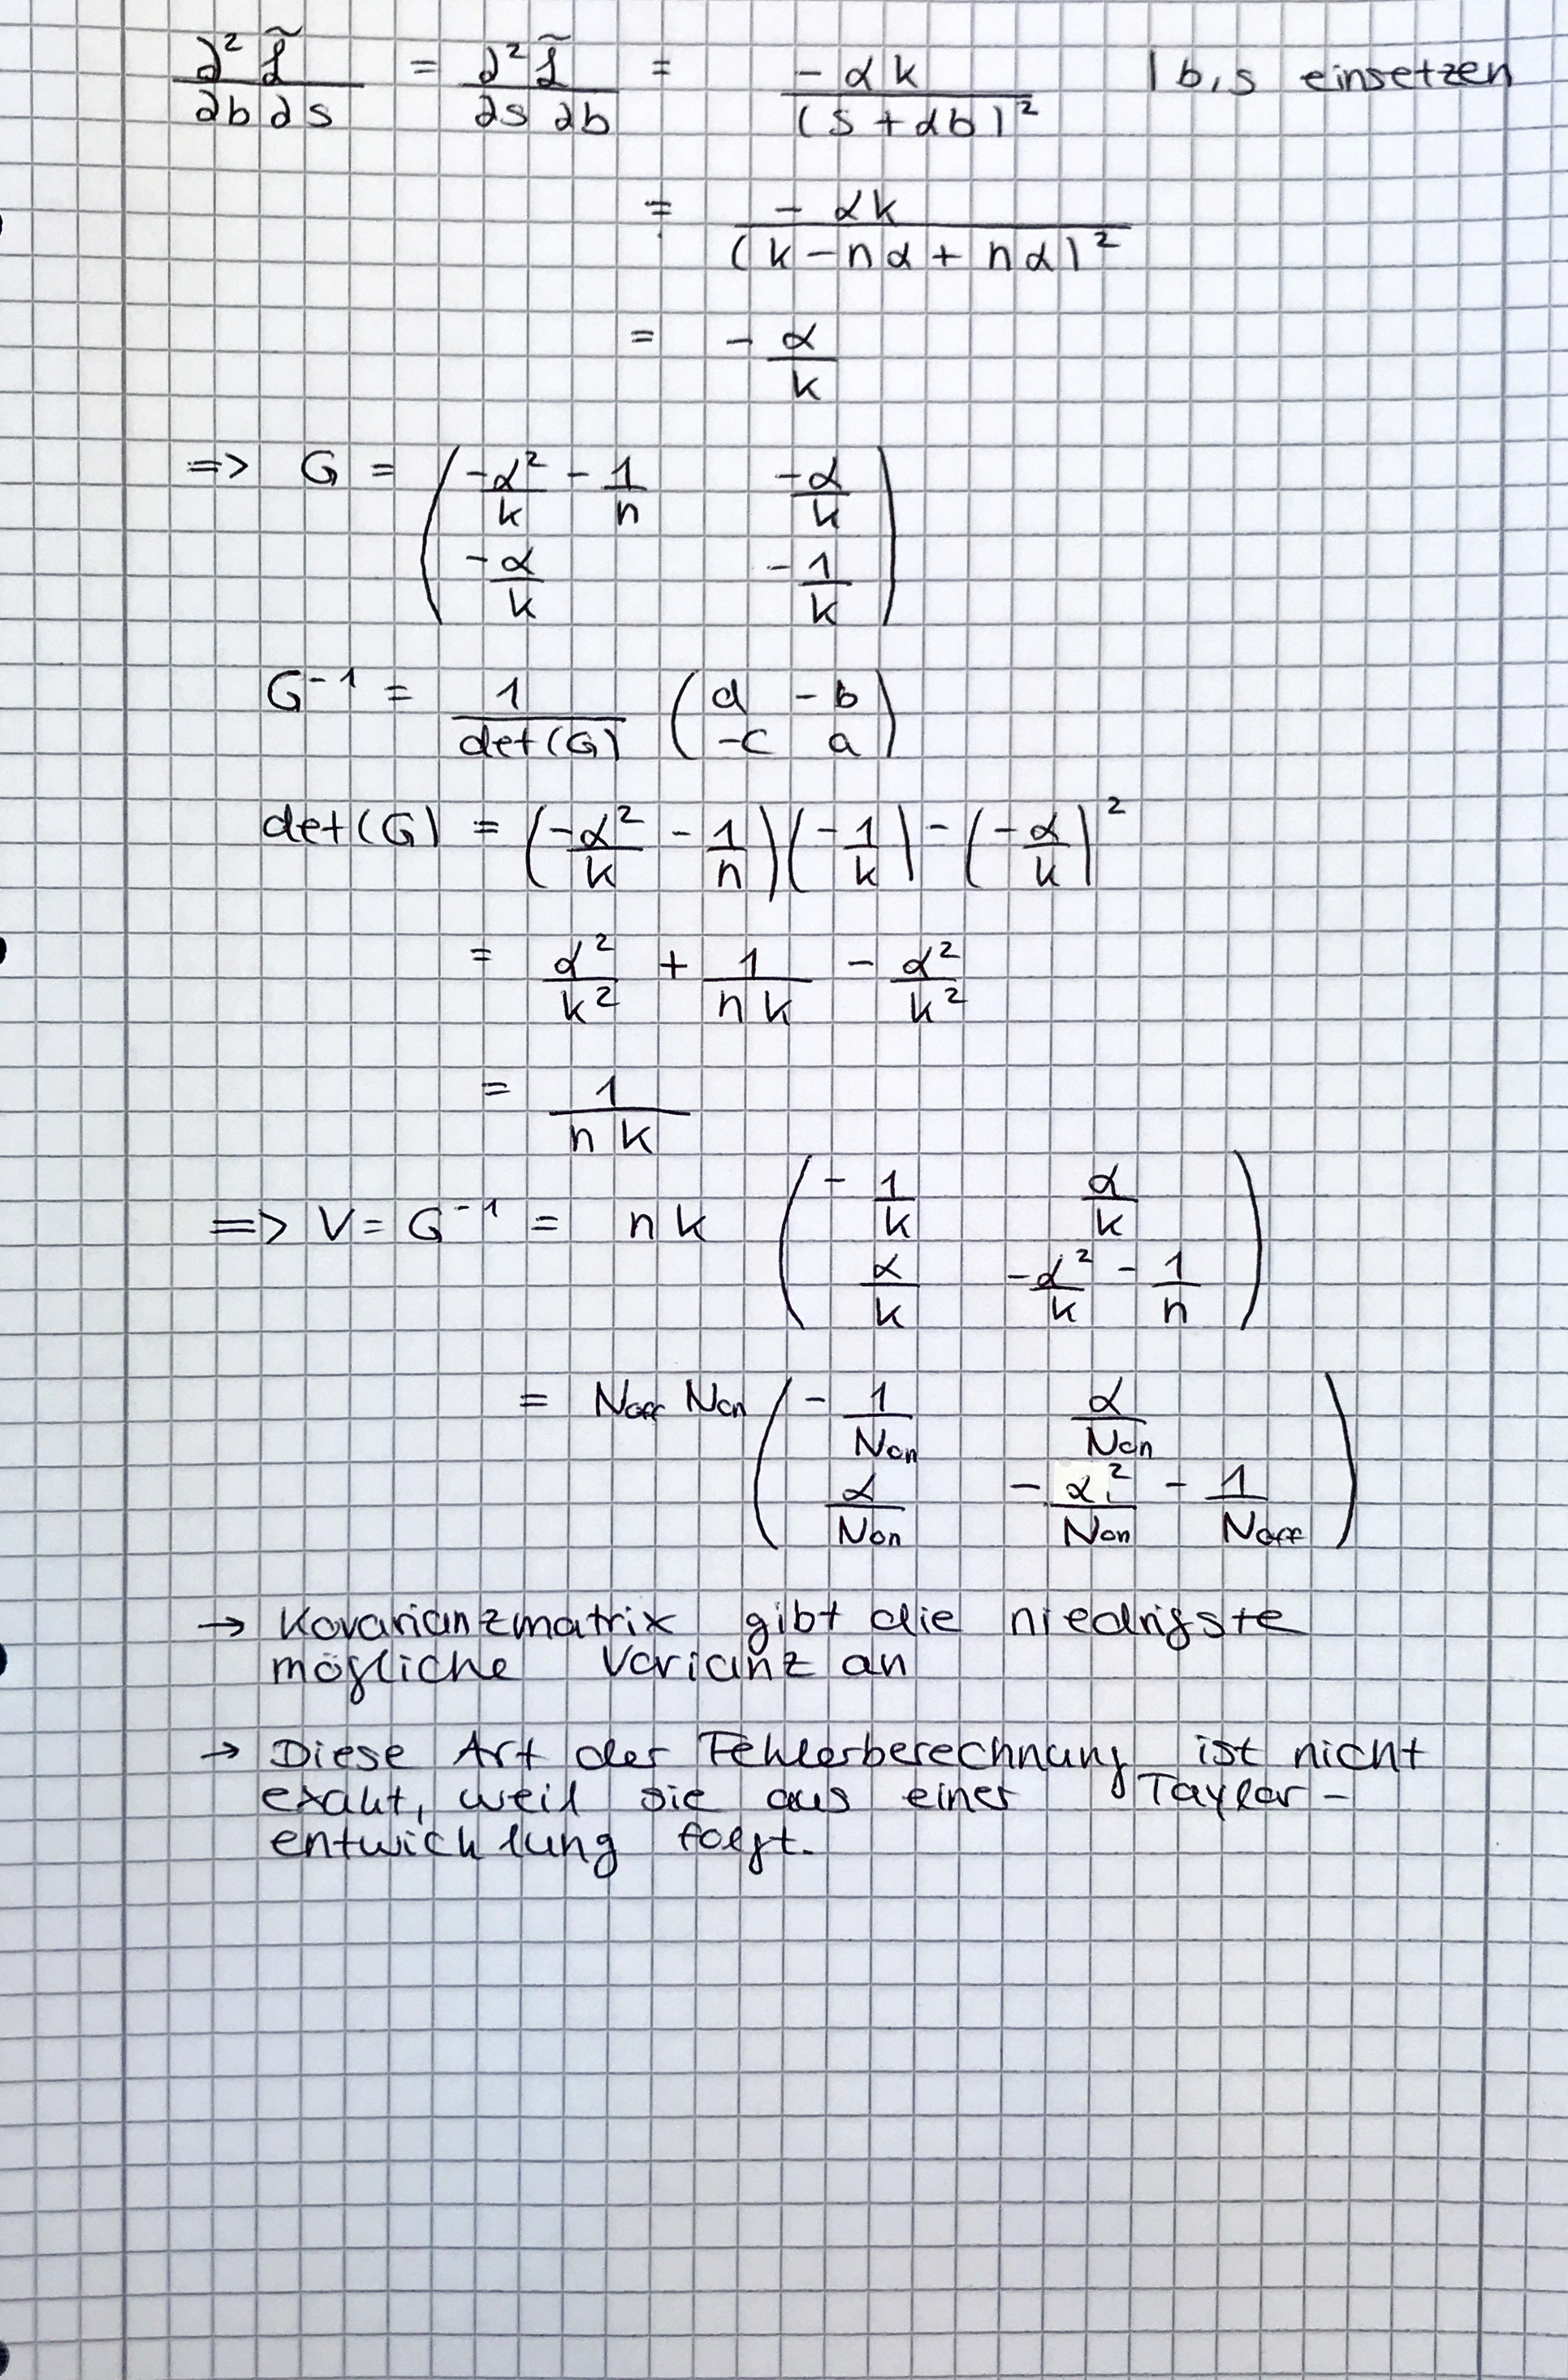 ∂² L̃ / (∂b ∂s) = ∂² L̃ / (∂s ∂b) = -αk / (s + αb)² | b,s einsetzen
= -αk / (k - nα + nα)²
= - α/k
=> G = ( -α²/k - 1/n   -α/k
-α/k   -1/k )
G⁻¹ = 1/det(G) ( d   -b
-c   a )
det(G) = (-α²/k - 1/n)(-1/k) - (-α/k)²
= α²/k² + 1/(n k) - α²/k²
= 1/(n k)
=> V = G⁻¹ = n k ( -1/k   α/k
α/k   -α²/k - 1/n )
= Noff Non ( -1/Non   α/Non
α/Non   -α²/Non - 1/Noff )
→ Kovarianzmatrix gibt die niedrigste
mögliche Varianz an
→ Diese Art der Fehlerberechnung ist nicht
exakt, weil sie aus einer Taylor-
entwicklung folgt.